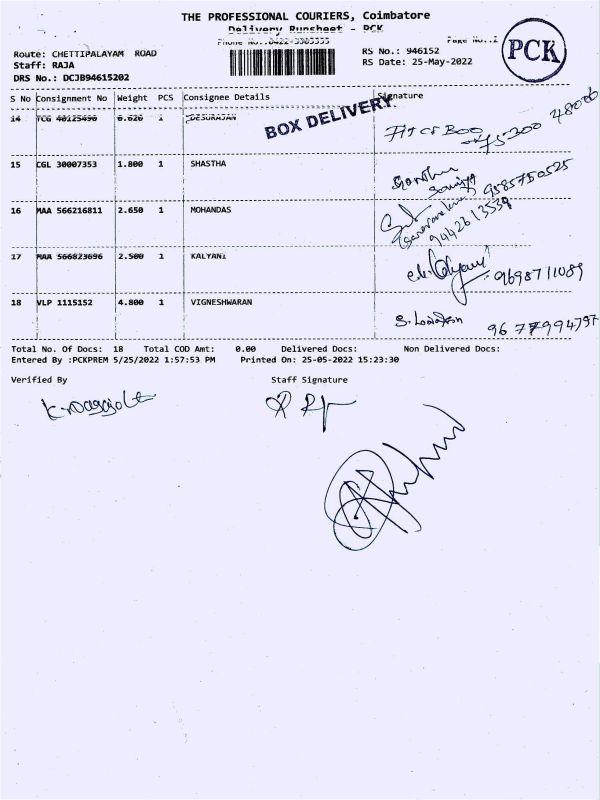 THE PROFESSIONAL COURIERS, Coimbatore
Delivery Runsheet - PCK
Phone No.:0422-3305555
Page No.:2
PCK
Route: CHETTIPALAYAM ROAD
RS No.: 946152
Staff: RAJA
RS Date: 25-May-2022
DRS No.: DCJB94615202
S No Consignment No Weight PCS Consignee Details Signature
BOX DELIVERY
14 TCG 40125490 6.620 1 DESURAJAN
75300 48006
15 CGL 30007353 1.800 1 SHASTHA
9585750525
16 MAA 566216811 2.650 1 MOHANDAS
9442613539
17 MAA 566823696 2.500 1 KALYANI
9698711089
18 VLP 1115152 4.800 1 VIGNESHWARAN
9677994797
Total No. Of Docs: 18 Total COD Amt: 0.00 Delivered Docs: Non Delivered Docs:
Entered By :PCKPREM 5/25/2022 1:57:53 PM Printed On: 25-05-2022 15:23:30
Verified By Staff Signature